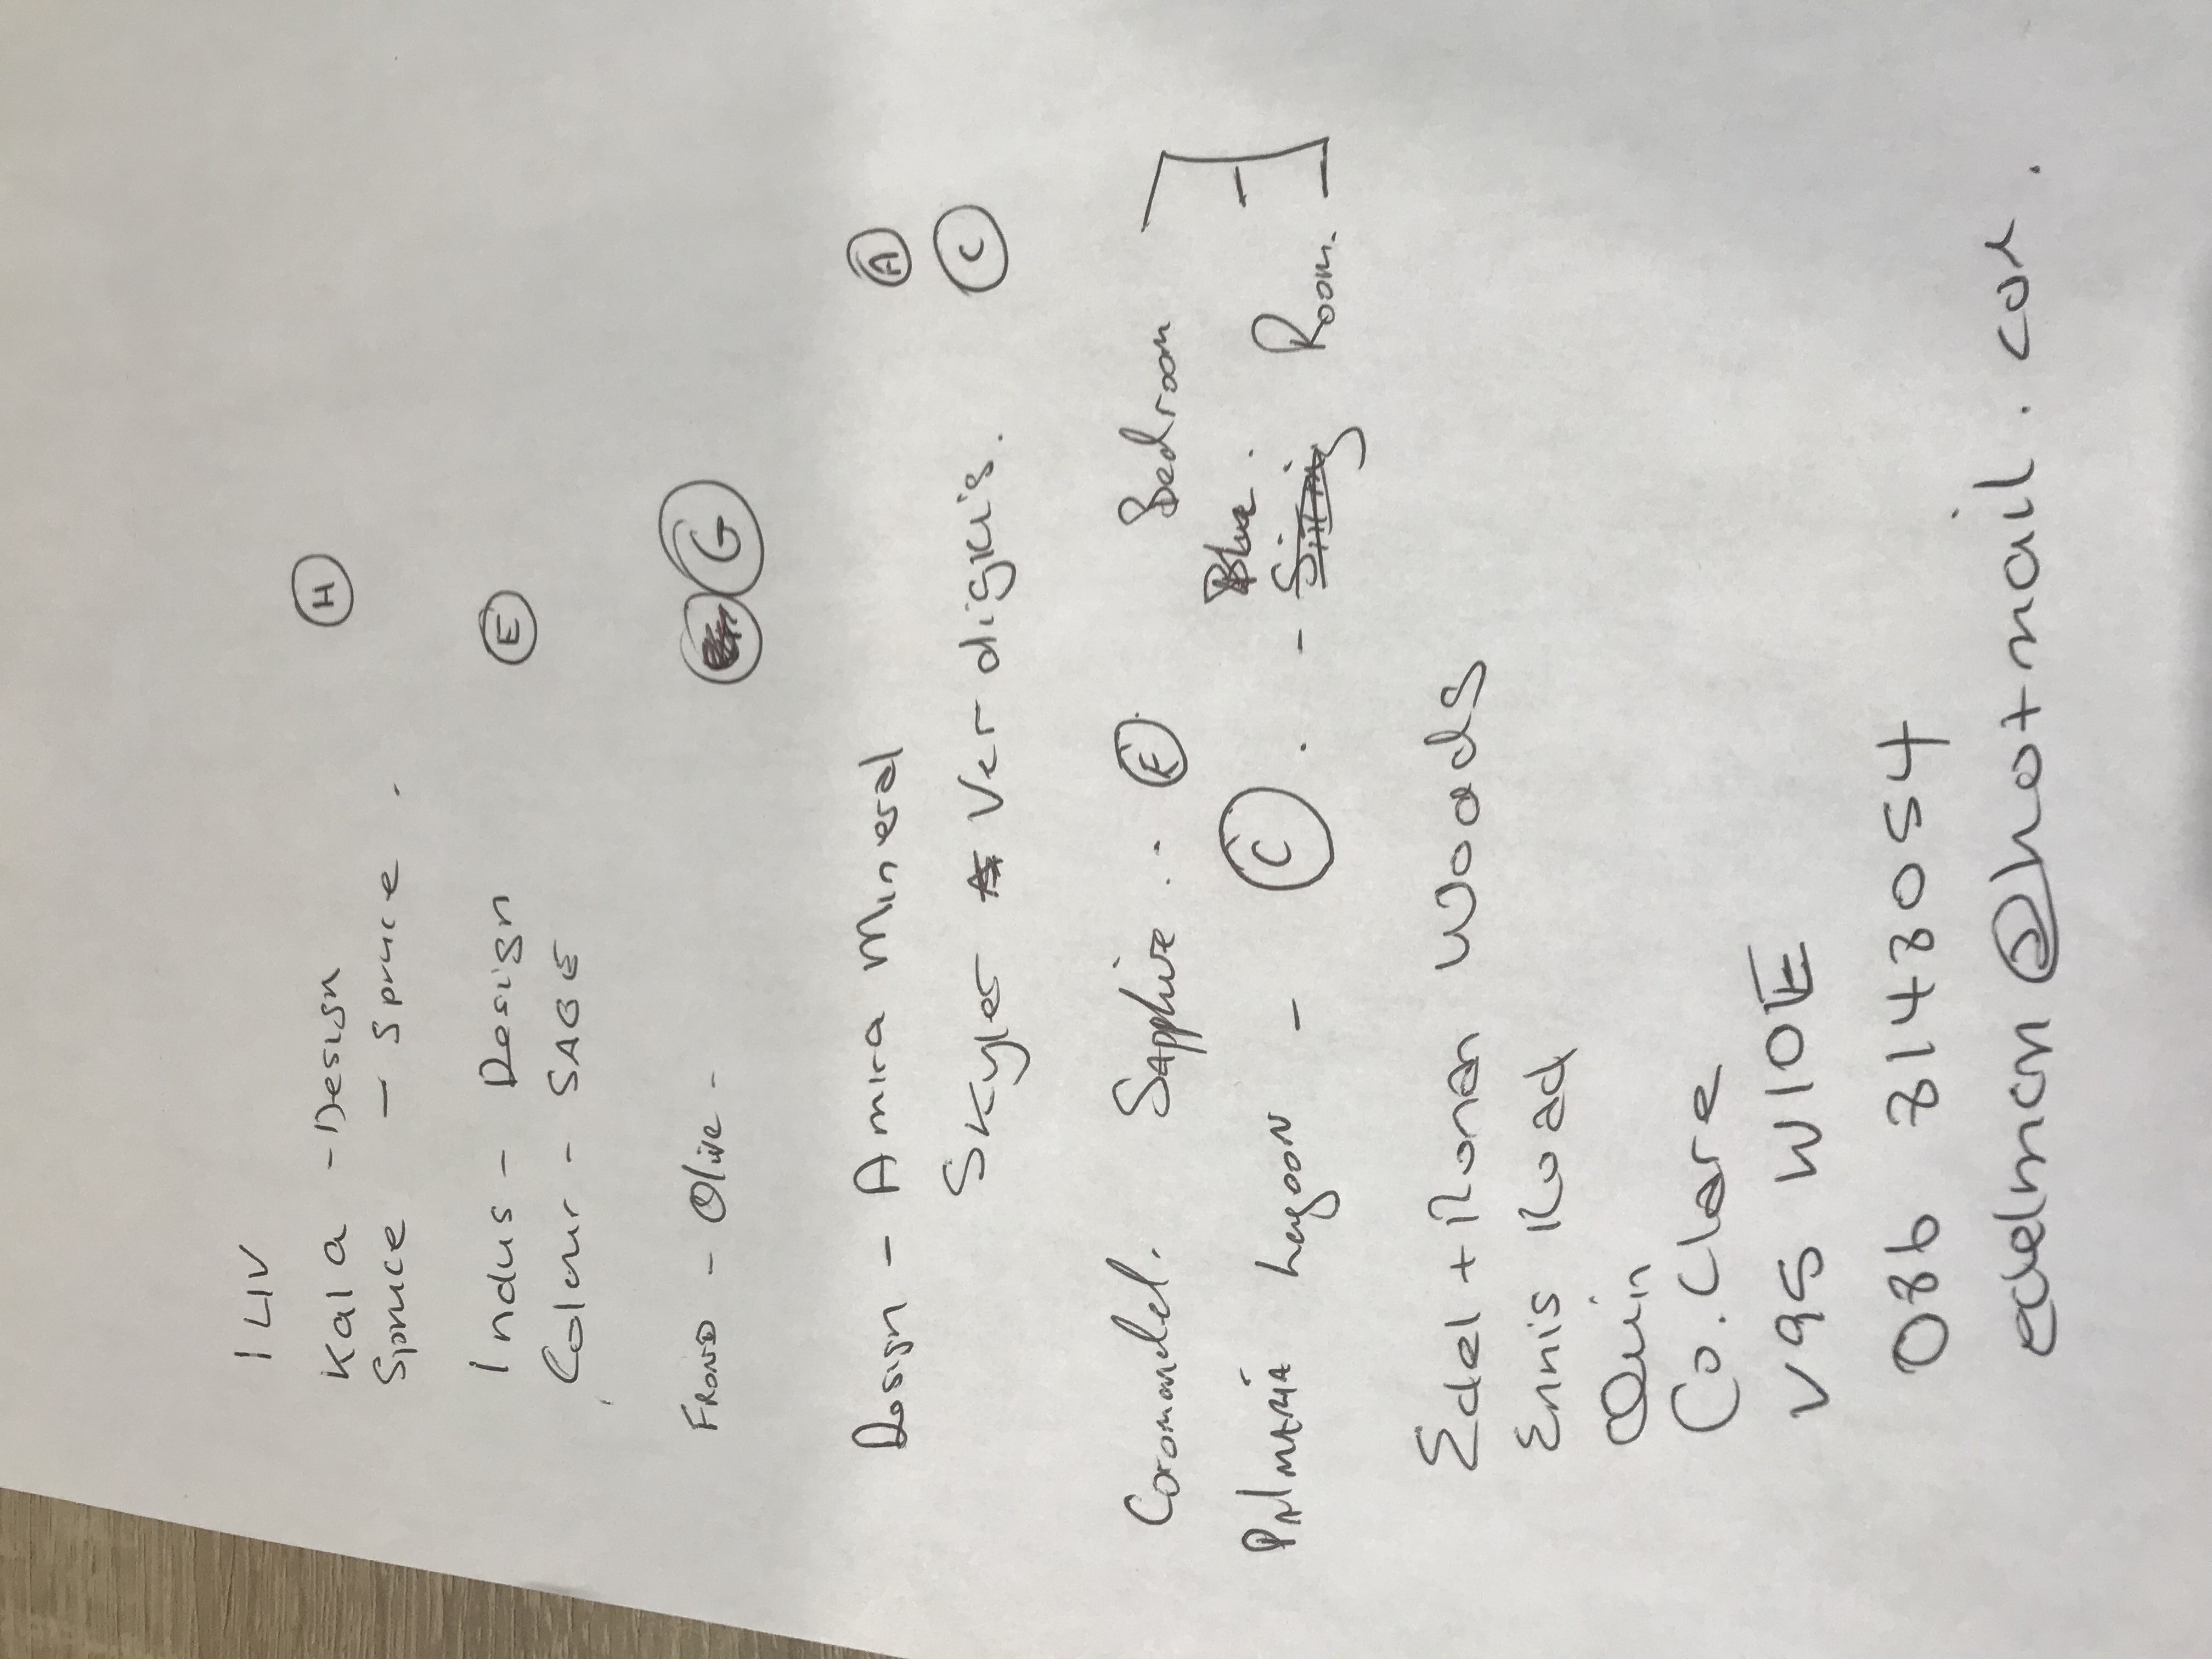 ILIV
Kala - Design (H)
Spruce - Spruce.
Indus - Design (E)
Colour - SAGE
FROND - Olive - (G)
Design - Amira Mineral (A)
Skyler Verdigris. (C)
Coromandel. Sapphire.. (E) Bedroom
Blue. -
PAlMARIA Lagoon - (C). - Sitting Room. -
Edel + Ronan Woods
Ennis Road
Quin
Co. Clare
V95 W10E
086 8143054
edelmcm@hotmail.com.